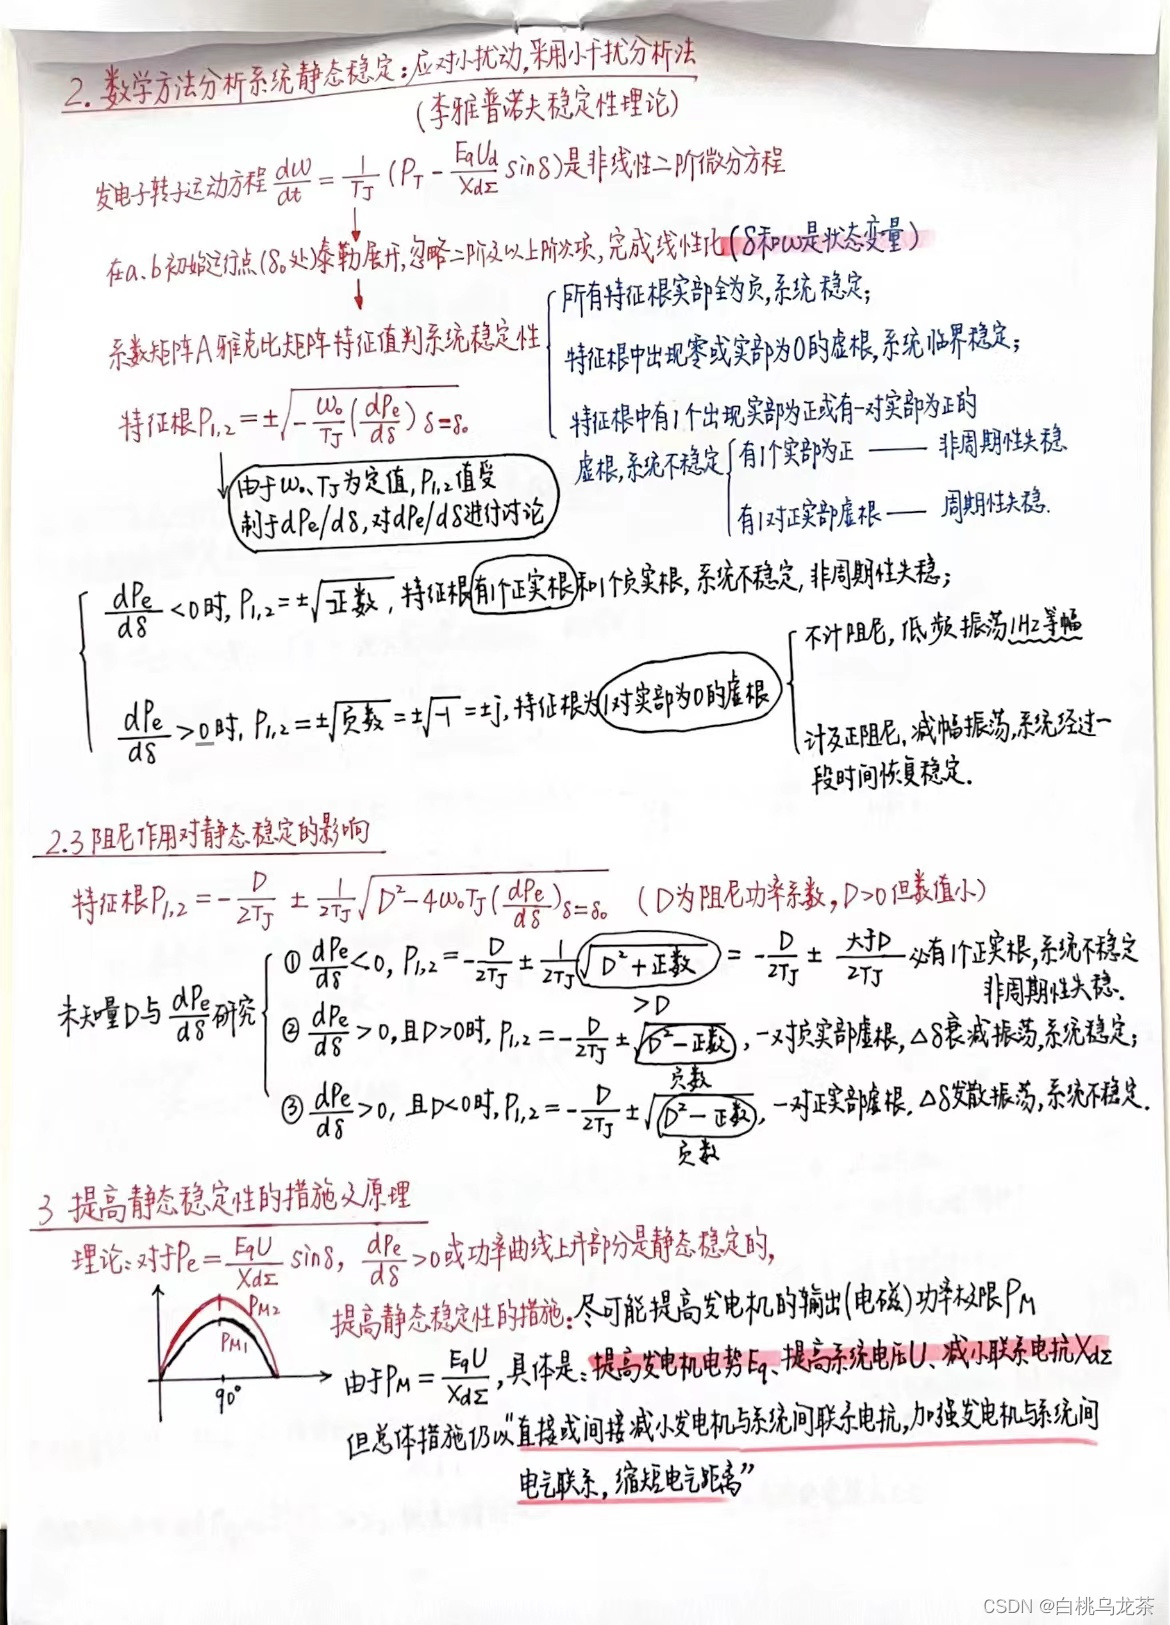 2. 数学方法分析系统静态稳定:应对小扰动,采用小干扰分析法
(李雅普诺夫稳定性理论)
发电子转子运动方程 dω/dt = 1/TJ (PT - EqUd/XdΣ sinδ)是非线性二阶微分方程
↓
在a、b初始运行点(δ。处)泰勒展开,忽略二阶及以上阶次项,完成线性化(δ和ω是状态变量)
↓
系数矩阵A雅克比矩阵特征值判系统稳定性
所有特征根实部全为负,系统稳定;
特征根中出现零或实部为0的虚根,系统临界稳定;
特征根中有1个出现实部为正或有一对实部为正的
虚根,系统不稳定
有1个实部为正 —— 非周期性失稳
有1对正实部虚根 —— 周期性失稳.
特征根P1,2 = ±√(-ω。/TJ (dPe/dδ) δ=δ。)
↓
由于ω。、TJ为定值,P1,2值受
制于dPe/dδ,对dPe/dδ进行讨论
dPe/dδ <0时, P1,2 = ±√正数, 特征根有1个正实根和1个负实根, 系统不稳定, 非周期性失稳;
dPe/dδ >0时, P1,2 = ±√负数 = ±√-1 = ±j, 特征根为1对实部为0的虚根
不计阻尼, 低频振荡1HZ等幅
计及正阻尼, 减幅振荡,系统经过一
段时间恢复稳定.
2.3 阻尼作用对静态稳定的影响
特征根P1,2 = - D/2TJ ± 1/2TJ √(D²-4ω。TJ(dPe/dδ)δ=δ。) (D为阻尼功率系数, D>0但数值小)
未知量D与 dPe/dδ 研究
① dPe/dδ <0, P1,2 = - D/2TJ ± 1/2TJ √(D²+正数) = - D/2TJ ± 大于D/2TJ 必有1个正实根,系统不稳定
>D
非周期性失稳.
② dPe/dδ >0, 且D>0时, P1,2 = - D/2TJ ± √(D²-正数), 一对负实部虚根, △δ衰减振荡,系统稳定;
负数
③ dPe/dδ >0, 且D<0时, P1,2 = - D/2TJ ± √(D²-正数), 一对正实部虚根, △δ发散振荡,系统不稳定.
负数
3 提高静态稳定性的措施及原理
理论:对于Pe = EqU/XdΣ sinδ, dPe/dδ >0或功率曲线上升部分是静态稳定的,
PM2
PM1
90°
提高静态稳定性的措施:尽可能提高发电机的输出(电磁)功率极限PM
由于PM = EqU/XdΣ, 具体是:提高发电机电势Eq、提高系统电压U、减小联系电抗XdΣ
但总体措施仍以“直接或间接减小发电机与系统间联系电抗,加强发电机与系统间
电气联系, 缩短电气距离”
CSDN @白桃乌龙茶